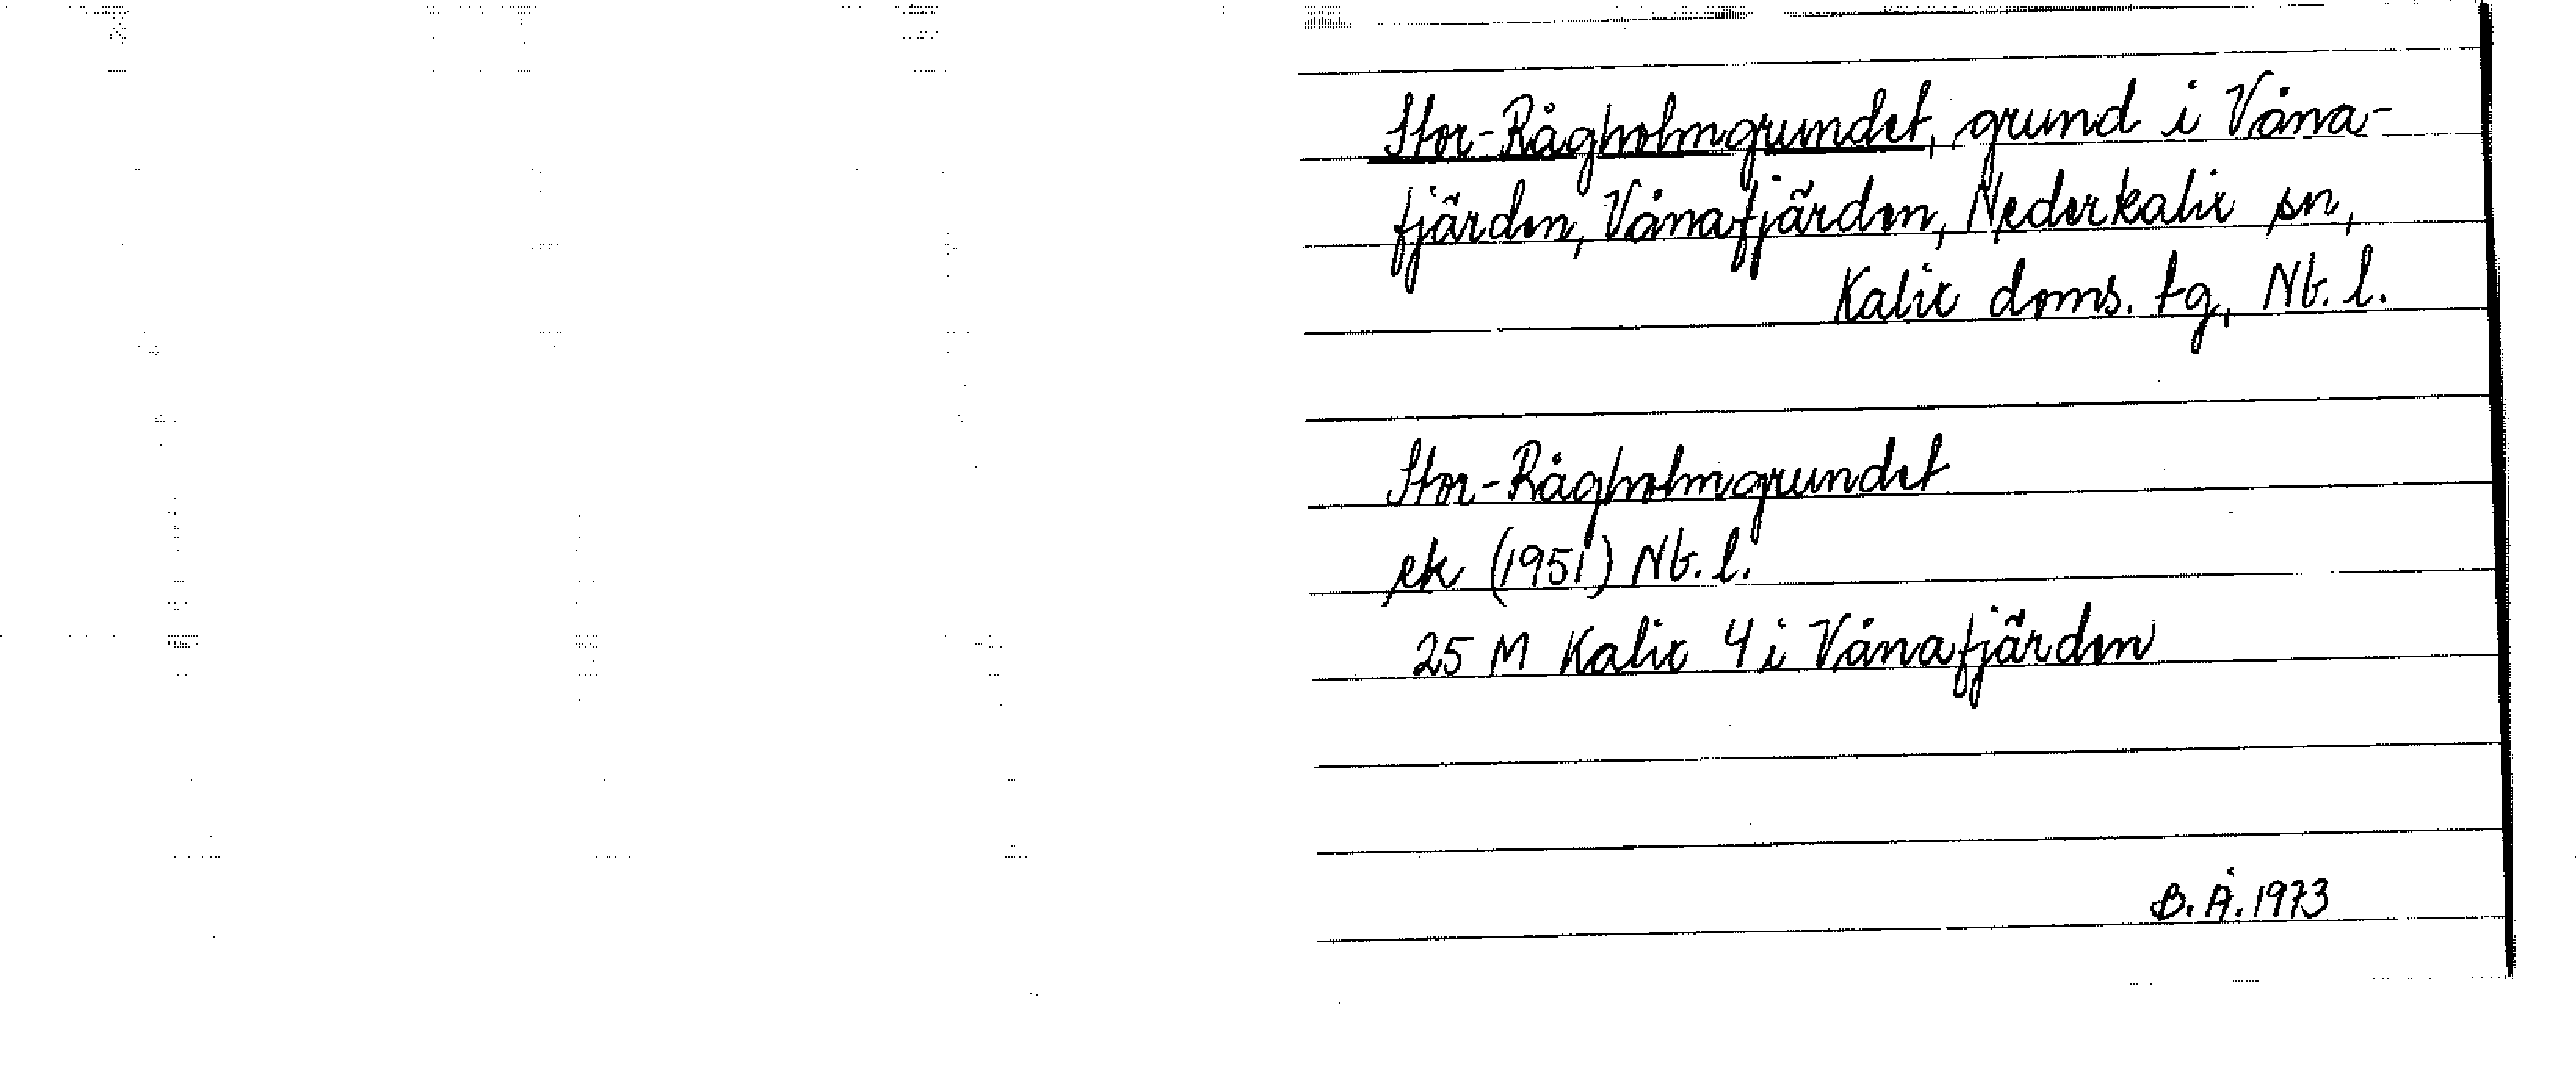 Stor-Rågholmgrundet, grund i Våna-
fjärden, Vånafjärden, Nederkalix sn,
Kalix doms. tg, Nb. l.
Stor-Rågholmgrundet
ek (1951) Nb. l.
25 M Kalix 4 i Vånafjärden
B. Å. 1973